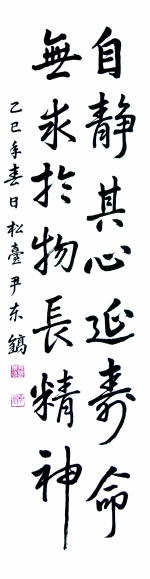 自静其心延寿命
無求於物長精神
乙巳年春日松臺尹东鎬